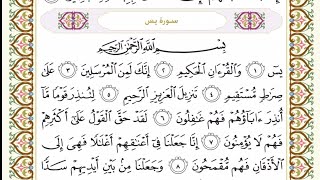 سورة يس
بِسْمِ اللَّهِ الرَّحْمَٰنِ الرَّحِيمِ
يسٓ ١ وَالْقُرْءَانِ الْحَكِيمِ ٢ إِنَّكَ لَمِنَ الْمُرْسَلِينَ ٣ عَلَىٰ
صِرَٰطٍ مُّسْتَقِيمٍ ٤ تَنزِيلَ الْعَزِيزِ الرَّحِيمِ ٥ لِتُنذِرَ قَوْمًا مَّا
أُنذِرَ ءَابَآؤُهُمْ فَهُمْ غَٰفِلُونَ ٦ لَقَدْ حَقَّ الْقَوْلُ عَلَىٰٓ أَكْثَرِهِمْ
فَهُمْ لَا يُؤْمِنُونَ ٧ إِنَّا جَعَلْنَا فِىٓ أَعْنَٰقِهِمْ أَغْلَٰلًا فَهِىَ إِلَى
الْأَذْقَانِ فَهُم مُّقْمَحُونَ ٨ وَجَعَلْنَا مِنۢ بَيْنِ أَيْدِيهِمْ سَدًّا